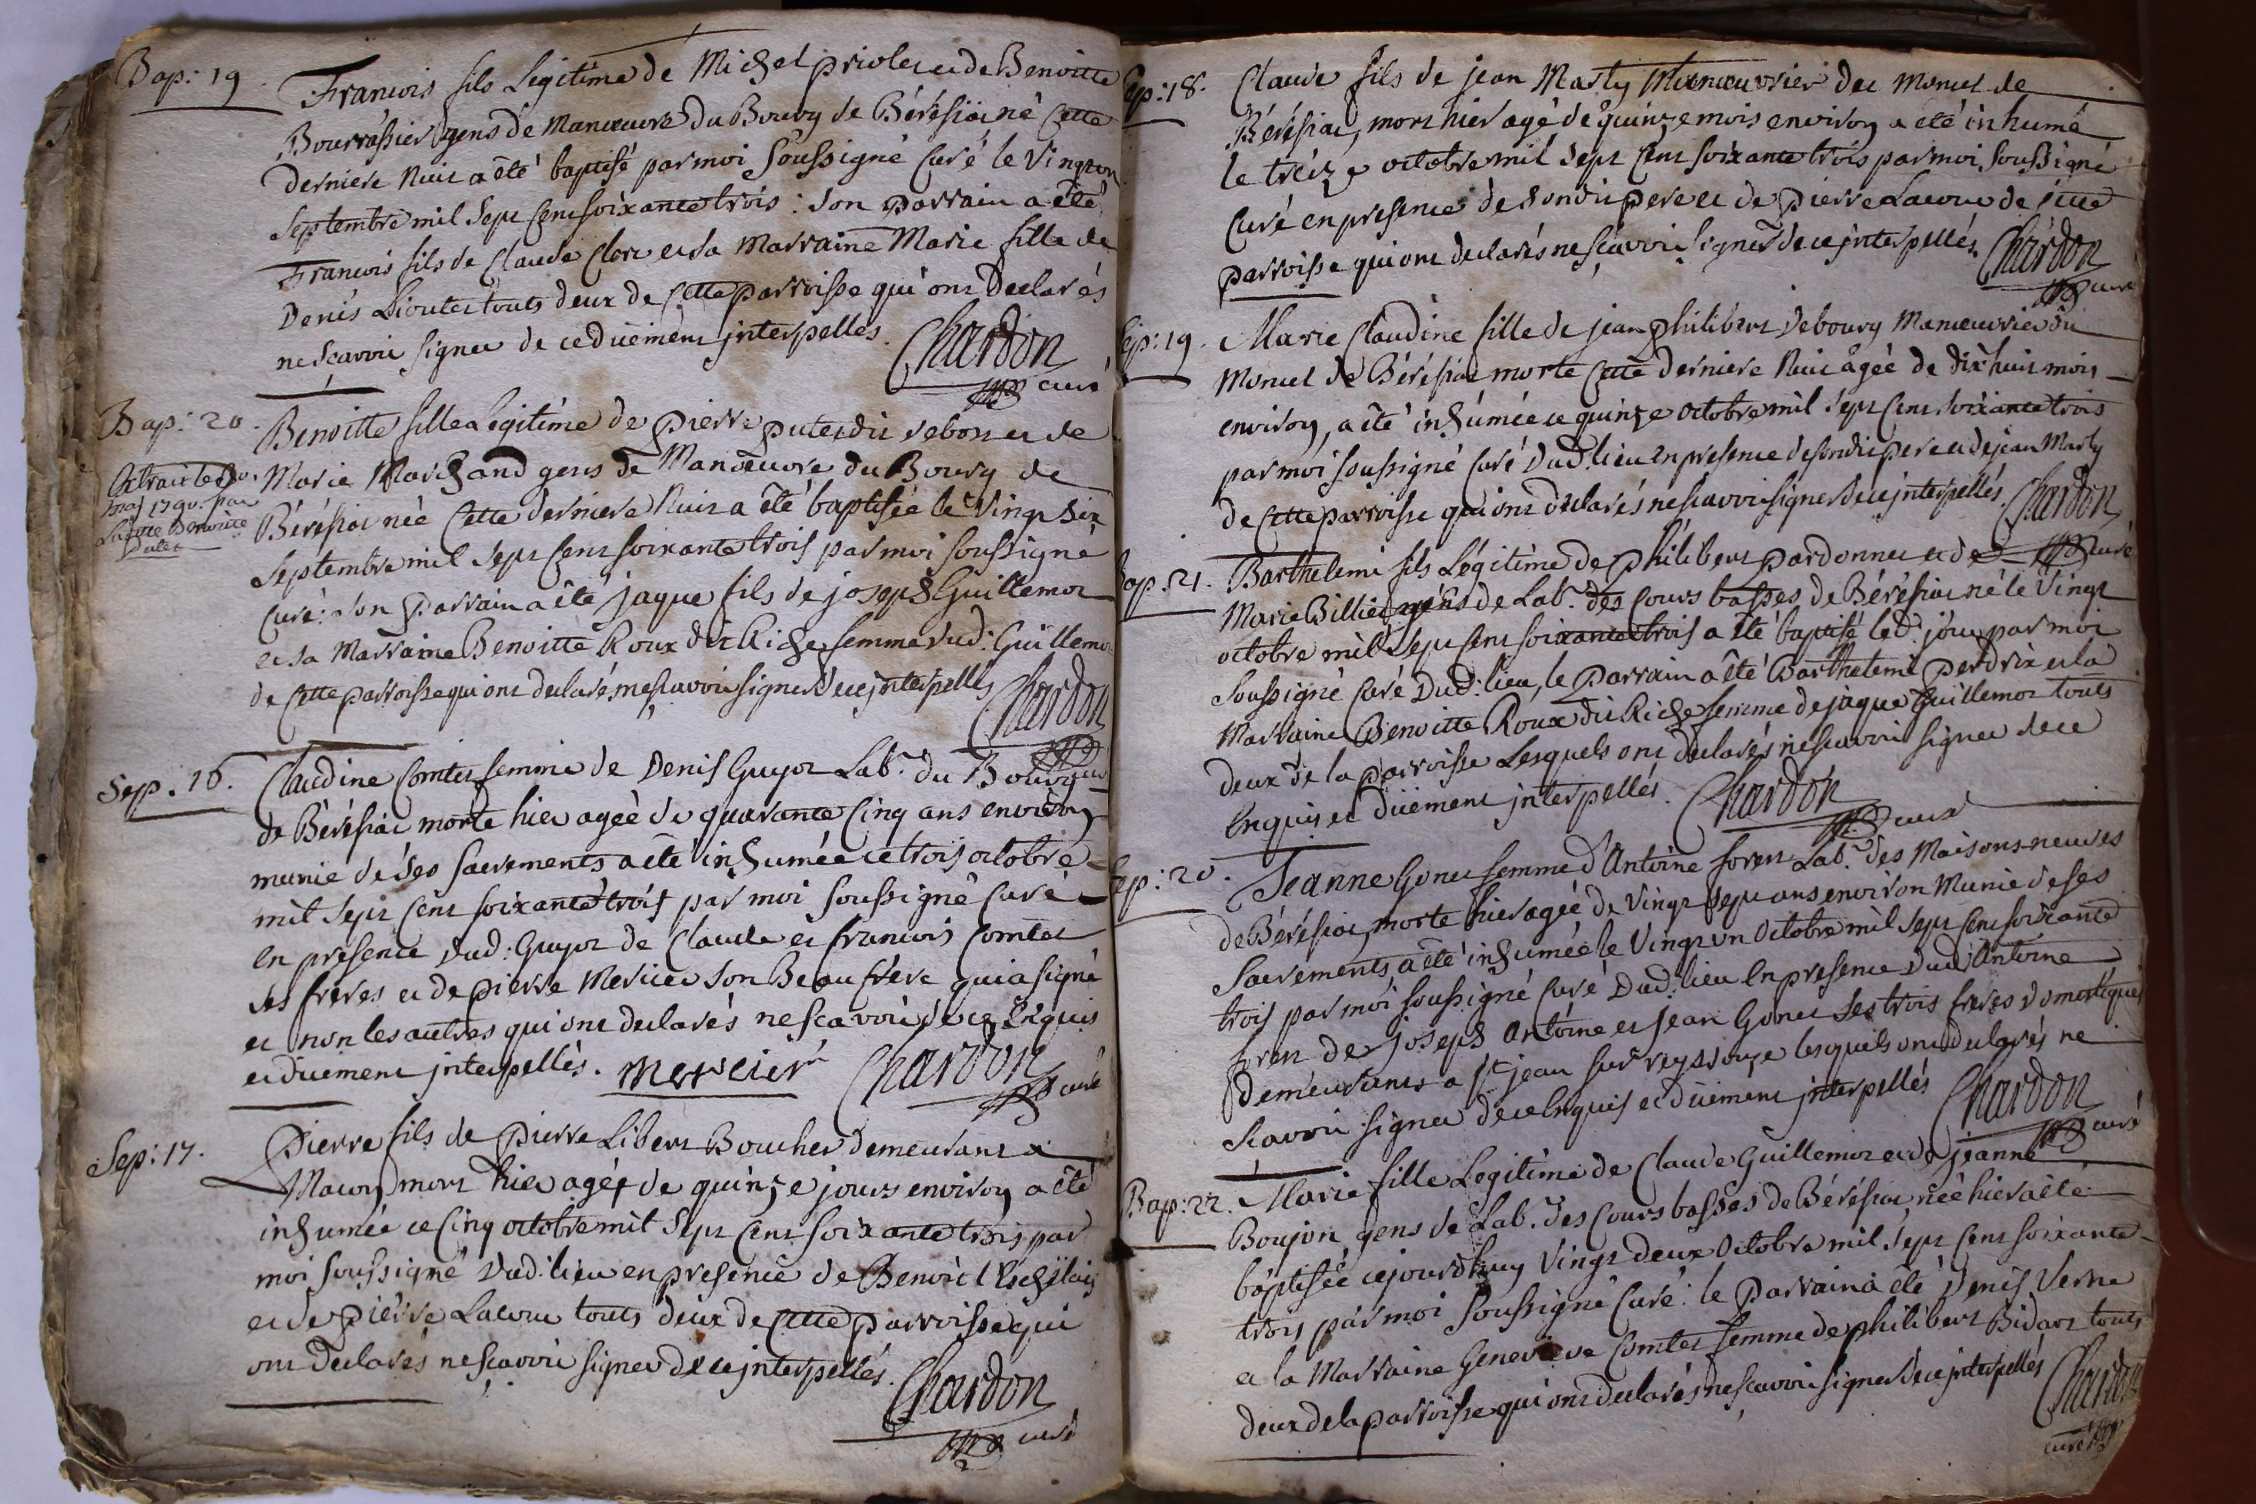 Bap: 19
Francois fils Legitime de Michel priolet et de Benoitte
Bourrassier gens de Manœuvre du Bourg de Béréfiac né cette
derniere nuit a été baptisé par moi soussigné curé le vingt un
septembre mil sept cent soixante trois : son parrain a été
Francois fils de Claude Clerc et sa marraine Marie fille de
Denis Lioutet touts deux de cette parroisse qui ont declarés
ne scavoir signer de ce duement interpelles.
Chardon
curé
Bap: 20.
Extrait le 20.
mai 1790. par
Benoitte fille Legitime de pierre putet dit debost et de
Marie Marchand gens de Manœuvre du Bourg de
Béréfiac née cette derniere Nuit a été baptisée le vingt six
septembre mil sept cent soixante trois par moi soussigné
curé: son parrain a été jaque fils de joseph Guillemot
et sa marraine Benoitte Roux dit Riche femme dud: Guillemot
de cette parroisse qui ont declarés ne scavoir signer de ce interpellés
Chardon
Sep. 16.
Claudine Comtet femme de Denis Guyot Lab.r du Bourg
de Béréfiac morte hier agée de quarante cinq ans environ
munie de ses sacrements a été inhumée ce trois octobre
mil sept cent soixante trois par moi soussigné curé
en presence dud: Guyot de Claude et francois Comtet
ses freres et de pierre Mercier son Beaufrere qui a signé
et non les autres qui ont declarés ne scavoir de ce Enquis
et duement interpellés. mercier Chardon
curé
Sep: 17.
Pierre fils de Pierre Libert Boucher demeurant a
Macon mort hier agé de quinze jours environ a été
inhumée ce cinq octobre mil sept cent soixante trois par
moi soussigné dud: lieu en presence de Benoit
et de pierre Lacour touts deux de cette parroisse qui
ont declarés ne scavoir signer de ce interpellés.
Chardon
curé
Sep: 18.
Claude fils de jean Marty Manœuvrier du monet de
Béréfiac, mort hier agé de quinze mois environ a été inhumé
le treize octobre mil sept cent soixante trois par moi soussigné
curé en presence de son dit pere et de pierre Lacour de cette
parroisse qui ont declarés ne scavoir signer de ce interpellés.
Chardon
curé
Sep: 19.
Marie Claudine fille de jean philibert debourg Manœuvrier du
monet de Béréfiac morte cette derniere Nuit agée de dix huit mois
environ, a été inhumée ce quinze octobre mil sept cent soixante trois
par moi soussigné curé dud: lieu en presence de son dit pere et de jean Marty
de cette parroisse qui ont declarés ne scavoir signer de ce interpellés.
Chardon
curé
Bap: 21.
Barthelemi fils Légitime de philibert pardonnet et de
Marie Billiet gens de Lab.r des Cours basses de Béréfiac né le vingt
octobre mil sept cent soixante trois a été baptisé led: jour par moi
soussigné curé dud: lieu, le parrain a été Barthelemi perdrix et la
marraine Benoitte Roux dit Riche femme de jaque Guillemot touts
deux de la parroisse Lesquels ont declarés ne scavoir signer de ce
Enquis et duement interpellés.
Chardon
curé
Sep: 20.
Jeanne Gonet femme d'Antoine foret Lab.r des Maisons neuves
de Béréfiac, morte hier agée de vingt sept ans environ munie de ses
sacrements a été inhumée le vingt un octobre mil sept cent soixante
trois par moi soussigné curé dud: lieu en presence dud: Antoine
foret de joseph Antoine et jean Gonet ses trois freres domestiques
demeurants a St jean sur reyssouze lesquels ont declarés ne
scavoir signer de ce Enquis et duement interpellés
Chardon
curé
Bap: 22.
Marie fille Legitime de Claude Guillemot et de jeanne
Boujon gens de Lab. des Cours basses de Béréfiac, née hier a été
baptisée ce jourdhuy vingt deux octobre mil sept cent soixante
trois par moi soussigné curé: le parrain a été Denis Verne
et la marraine Genevieve Comtet femme de philibert Bidart touts
deux de la parroisse qui ont declarés ne scavoir signer de ce interpellés
Chardon
curé